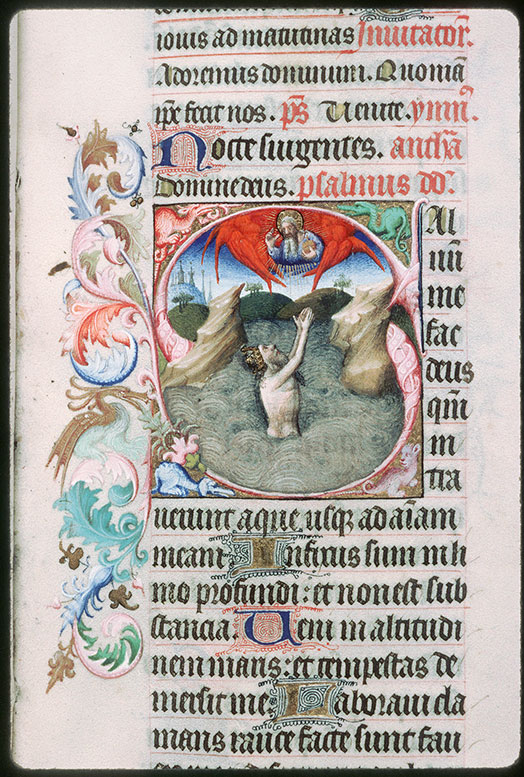 iouis ad matutinas Inuitator.
Adoremus dominum. Quoniā
ipe fecit nos. ps Uenite. ymn
Nocte surgentes. antha
Domine deus. psalmus dd.
Sal
uū
me
fac
deus
qm
in
tra
uerunt aque usq ad aiam
meam Infixus sum in li
mo profundi: et non est sub
stancia. Ueni in altitudi
nem maris: et tempestas de
mersit me Laboraui cla
mans rauce facte sunt fau